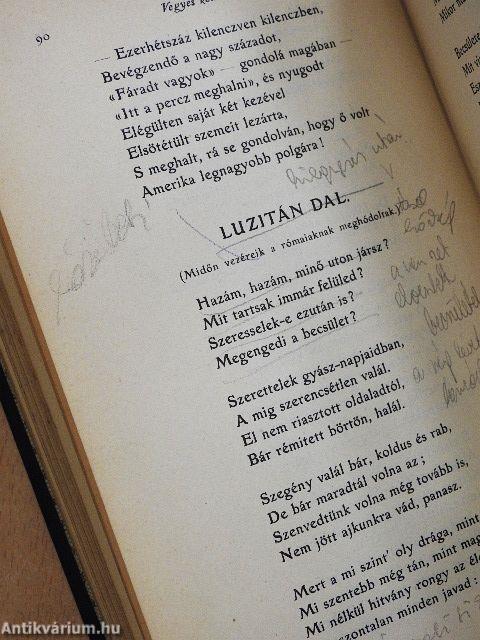 90
Vegyes
— Ezerhétszáz kilenczven kilenczben,
Bevégzendő a nagy századot,
«Fáradt vagyok» — gondolá magában —
«Itt a percz meghalni», és nyugodt
Elégülten saját két kezével
Elsötétült szemeit lezárta,
S meghalt, rá se gondolván, hogy ő volt
Amerika legnagyobb polgára!
LUZITÁN DAL.
(Midőn vezéreik a rómaiaknak meghódoltak.)
Hazám, hazám, minő uton jársz?
Mit tartsak immár felüled?
Szeresselek-e ezután is?
Megengedi a becsület?
Szerettelek gyász-napjaidban,
A mig szerencsétlen valál.
El nem riasztott oldaladtól,
Bár rémitett börtön, halál.
Szegény valál bár, koldus és rab,
De bár maradtál volna az;
Szenvedtünk volna még tovább is,
Nem jött ajkunkra vád, panasz.
Mert a mi szint' oly drága, mint
Mi szentebb még tán, mint
Mi nélkül hitvány rongy az
minden javad:
Mikor
Becsülete
Mit
Antikvárium.hu